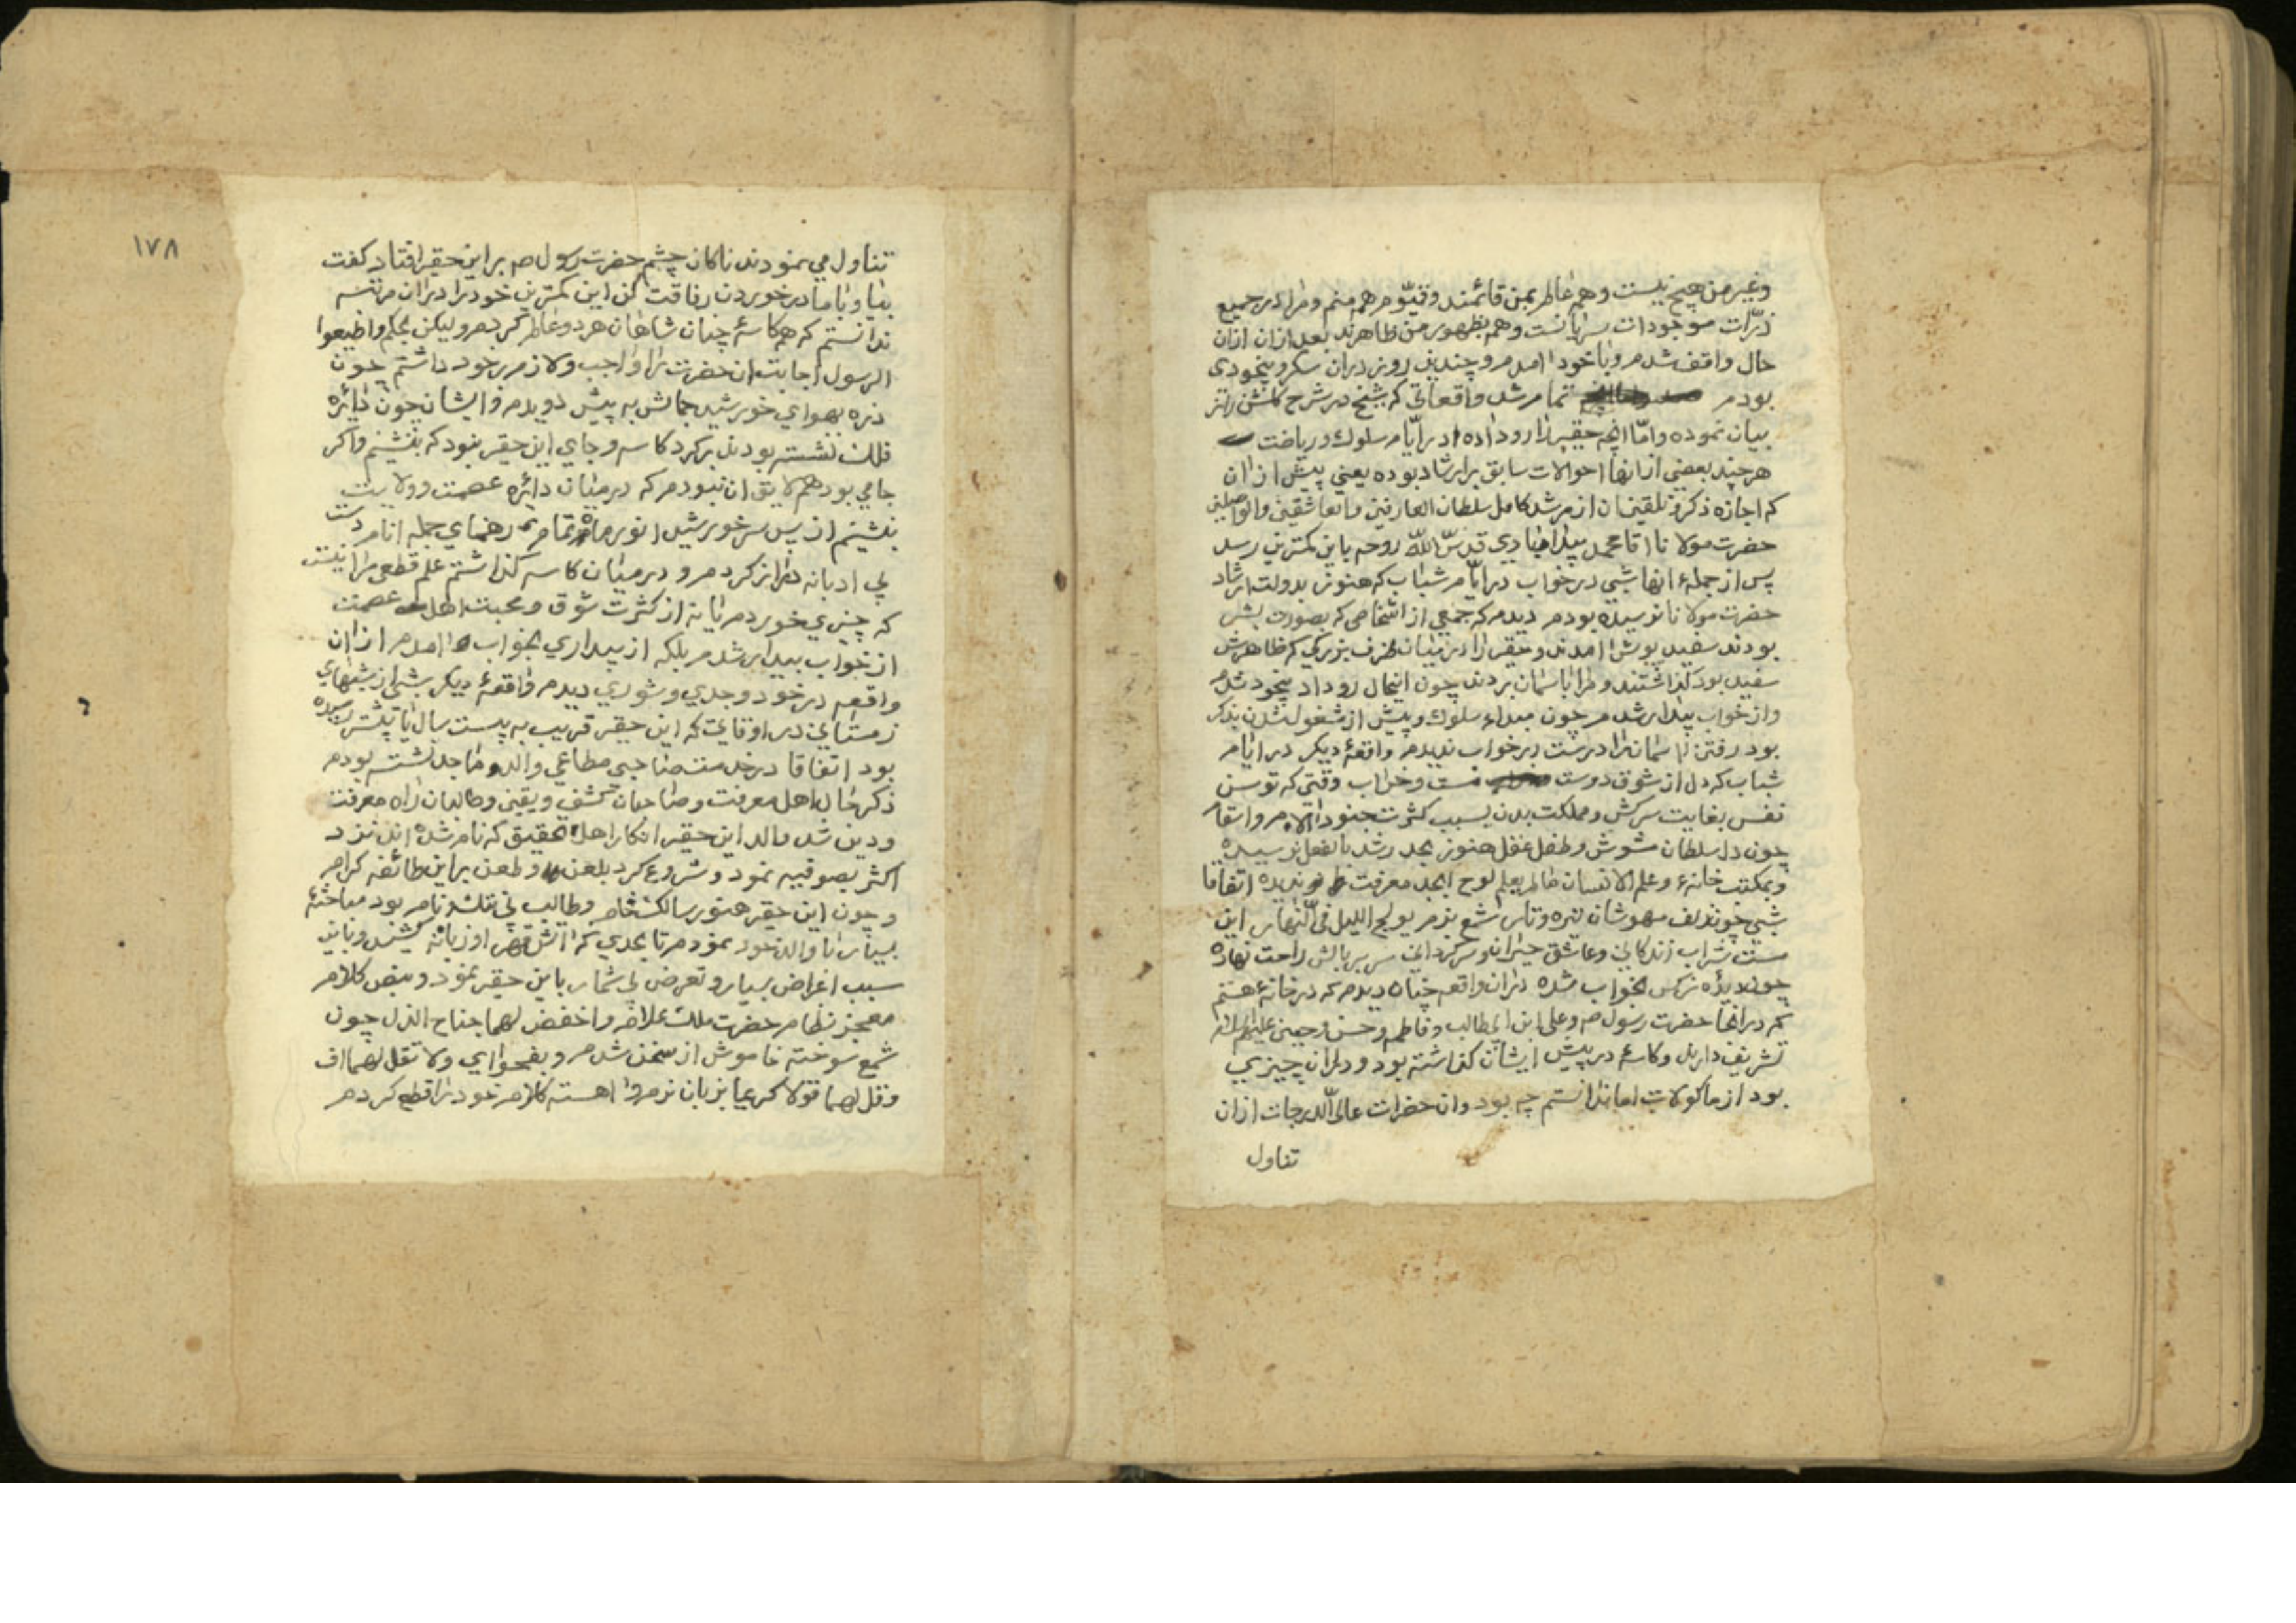 وغیر من هیچ نیست و همه عالم بمن قائمند و قیّوم همه منم و مرا در جمیع
ذرّات موجودات سریانست و همه بظهور من ظاهرند بعد ازان ازان
حال واقف شدم و با خود امدم و چندین روز دران سکر و بیخودی
بودم تمام شد واقعاتی که شیخ در شرح کلشن راز
بیان نموده و امّا انچه حقیر را رو داده در ایّام سلوک و ریاضت
هر چند بعضی از انها احوالات سابق بر ارشاد بوده یعنی پیش از ان
که اجازه ذکر و تلقینان از مرشد کامل سلطان العارفین والعاشقین والواصلین
حضرت مولانا اقا محمد بیدابادی قدسّ اللّه روحه باین کمترین رسد
پس از جملهٔ انها شبی در خواب در ایّام شباب که هنوز بدولت ارشاد
حضرت مولانا نرسیده بودم دیدم که جمعی از اشخاصی که بصورت بشر
بودند سفید پوش امدند و حقیر را در میان ظرف بزرکی که ظاهرش
سفید بود کذاشتند و مرا باسمان بردند چون اینحال رو داد بیخود شدم
و از خواب بیدار شدم چون مبداء سلوک و پیش از مشغول شدن بذکر
بود رفتن اسمان را درست در خواب ندیدم واقعهٔ دیکر در ایام
شباب که دل از شوق دوست مست و خراب وقتی که توسن
نفس بغایت سرکش و مملکت بدن بسبب کثرت جنود الام و اسقام
چون دل سلطان مشوش و طفل عقل هنوز بحد رشد بالفعل نرسیده
و بمکتب خانهٔ و علم الانسان مالم یعلم لوح ابجد معرفت ندیده اتفاقا
شبی چون زلف مهوشان تیره و تار شمع بزم یولج اللیل فی النّهار این
مست شراب زندکانی و عاشق حیران و سرکردانی سر بر بالش راحت نهاده
چون دیدٔه نرکس بخواب شده دران واقعه چنان دیدم که در خانهٔ هستم
که در انجا حضرت رسول ص و علی ابن ابیطالب و فاطمه و حسن و حسین علیهم السلام
تشریف دارند و کاسهٔ در پیش ایشان کذاشته بود و دران چیزی
بود از ماکولات اما ندانستم چه بود و ان حضرات عالی الدرجات ازان
تناول
١٧٨
تناول می نمودند ناکاه چشم حضرت رسول ص بر این حقیر افتاد کفت
بیا و با ما در خوردن رفاقت کن این کمترین خود را در ان مرتبه
ندانستم که همکاسهٔ چنان شاهان هر دو عالم کردم ولیکن بحکم واطیعوا
الرسول اجابت ان حضرت را واجب و لازم بر خود داشتم چون
ذره بهوای خورشید جمالش به پیش دویدم و ایشان چون دائره
فلک نشسته بودند بر کرد کاسه و جای این حقیر نبود که بنشینم و اکر
جامی بود هم لایق ان نبودم که در میان دائره عصمت و ولایت
بنشینم از پس سر خورشید انور ماه تمام رهنمای جمله انام دست
بی ادبانه دراز کردم و در میان کاسه کذاشتم علم قطعی مرا نیست
که چیزی خوردم یا نه از کثرت شوق و محبت اهل عصمت
از خواب بیدار شدم بلکه از بیداری بخواب امدم از ان
واقعه در خود وجدی و شوری دیدم واقعهٔ دیکر شبی از شبهای
زمستانی در اوقاتی که این حقیر قریب به بیست سال یا بیشتر رسیده
بود اتفاقا در خدمت صاحبی مطاعی والد ماجد نشسته بودم
ذکر حال اهل معرفت و صاحبان کشف و یقین و طالبان راه معرفت
و دین شد والد این حقیر انکار اهل تحقیق که نام شده اند نزد
اکثر بصوفیه نمود و شروع کرد بلعن و طعن بر این طائفه کرام
و چون این حقیر هنوز سالک خام و طالب بی ننک و نام بود مباحثهٔ
بسیار با والد خود نمودم تا بحدی که اتش قهر او زبانه کشید و باین
سبب اغراض بسیار و تعرض بی شمار باین حقیر نمود و بنص کلام
معجز نظام حضرت ملک علام واخفض لهما جناح الذل چون
شمع سوخته خاموش از سخن شدم و بفحوای ولا تقل لهما اف
وقل لهما قولا کریما بزبان نرم و اهسته کلام خود را قطع کردم